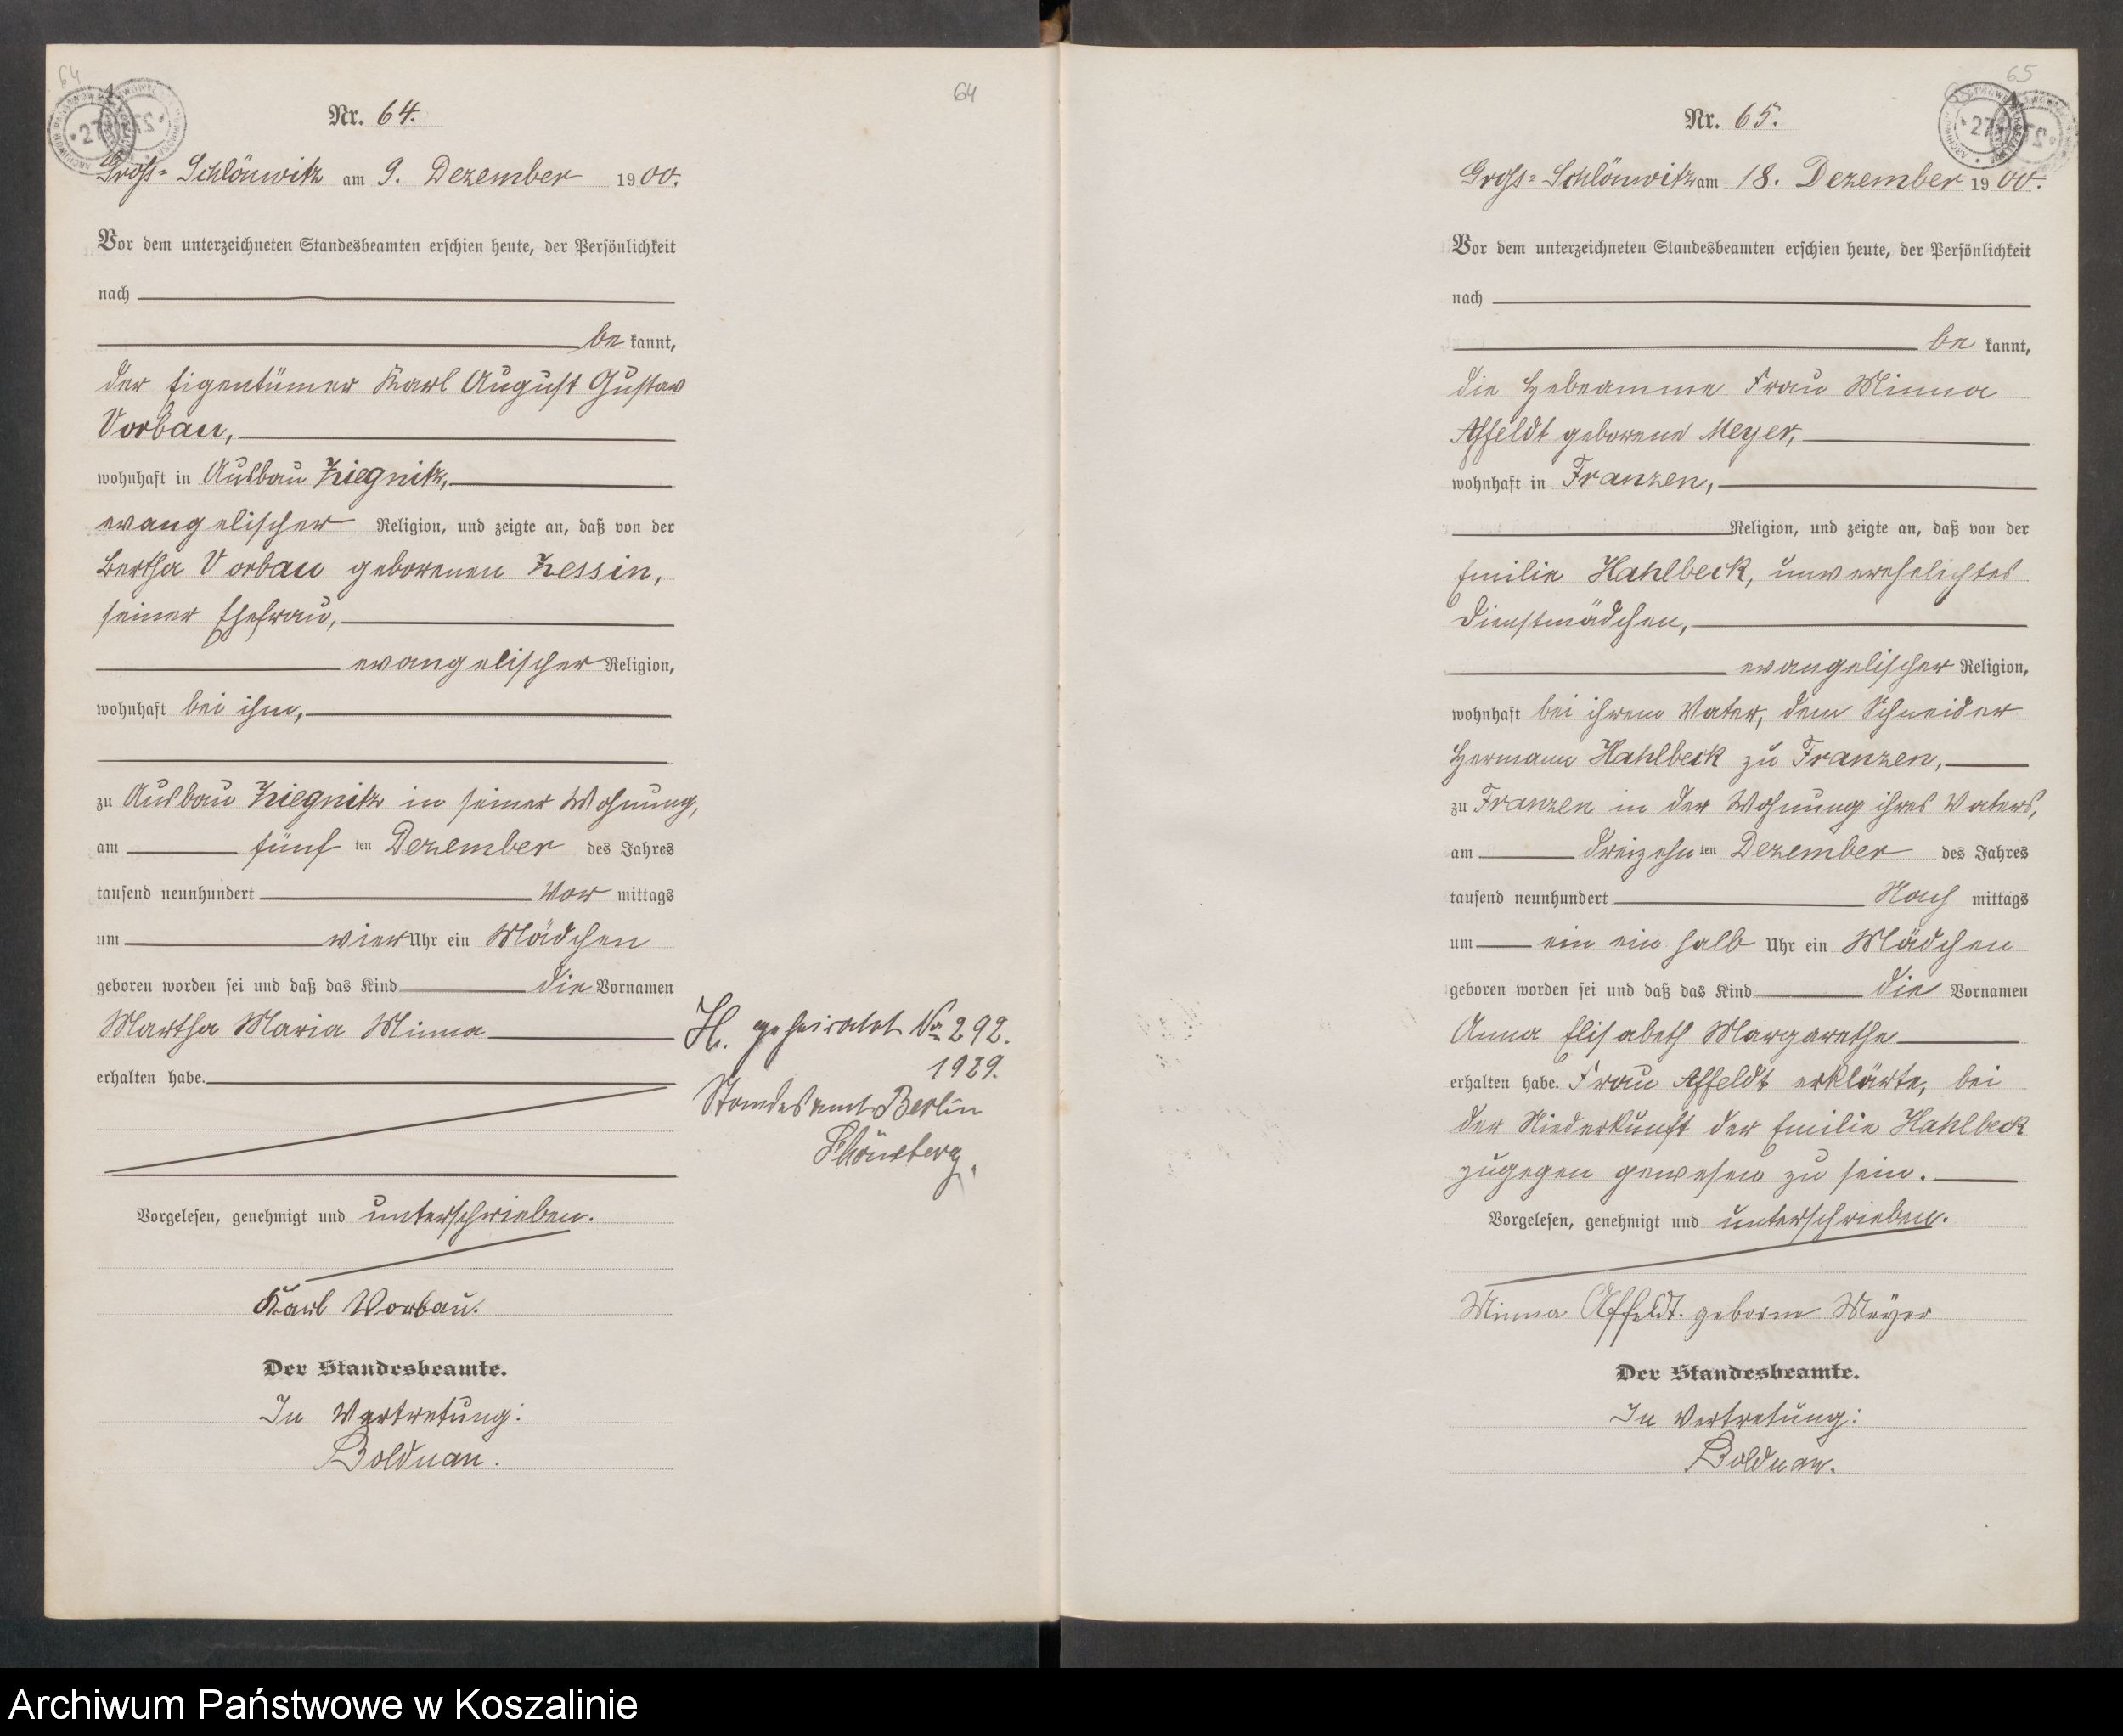 64
Nr. 64.
Groß-Schlönwitz am 9. Dezember 1900.
Vor dem unterzeichneten Standesbeamten erschien heute, der Persönlichkeit
nach
be kannt,
der Eigentümer Karl August Gustav
Vorbau,
wohnhaft in Ausbau Ziegnitz,
evangelischer Religion, und zeigte an, daß von der
Bertha Vorbau geborenen Zessin,
seiner Ehefrau,
evangelischer Religion,
wohnhaft bei ihm,
zu Ausbau Ziegnitz in seiner Wohnung,
am fünf ten Dezember des Jahres
tausend neunhundert Vor mittags
um vier Uhr ein Mädchen
geboren worden sei und daß das Kind die Vornamen
Martha Maria Minna
erhalten habe.
Vorgelesen, genehmigt und unterschrieben.
Karl Vorbau.
Der Standesbeamte.
In Vertretung:
Bolduan.
64
H. geheiratet No 292.
1929.
Standesamt Berlin
Schöneberg.
65
Nr. 65.
Groß-Schlönwitz am 18. Dezember 1900.
Vor dem unterzeichneten Standesbeamten erschien heute, der Persönlichkeit
nach
be kannt,
die Hebeamme Frau Minna
Affeldt geborene Meyer,
wohnhaft in Franzen,
Religion, und zeigte an, daß von der
Emilie Hahlbeck, unverehelichtes
Dienstmädchen,
evangelischer Religion,
wohnhaft bei ihrem Vater, dem Schneider
Hermann Hahlbeck zu Franzen,
zu Franzen in der Wohnung ihres Vaters,
am dreizehn ten Dezember des Jahres
tausend neunhundert Nach mittags
um ein ein halb Uhr ein Mädchen
geboren worden sei und daß das Kind die Vornamen
Anna Elisabeth Margarethe
erhalten habe. Frau Affeldt erklärte, bei
der Niederkunft der Emilie Hahlbeck
zugegen gewesen zu sein.
Vorgelesen, genehmigt und unterschrieben.
Minna Affeldt. geborne Meyer
Der Standesbeamte.
In Vertretung:
Bolduan.
Archiwum Państwowe w Koszalinie